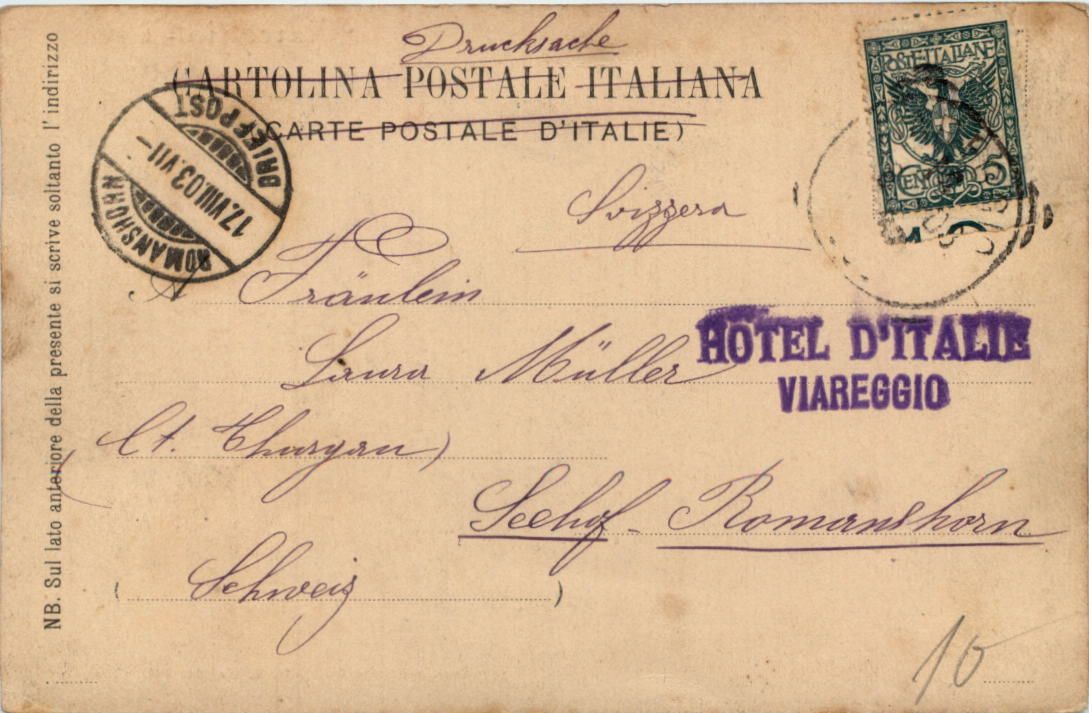 Drucksache
CARTOLINA POSTALE ITALIANA
(CARTE POSTALE D'ITALIE)
POSTE ITALIANE
CENT 5
ROMANSHORN
17.VIII.03.VII–
BRIEFPOST
Svizzera
A Fräulein
Laura Müller
HOTEL D'ITALIE
VIAREGGIO
(Ct. Thurgau)
Seehof - Romanshorn
(Schweiz)
10
NB. Sul lato anteriore della presente si scrive soltanto l'indirizzo